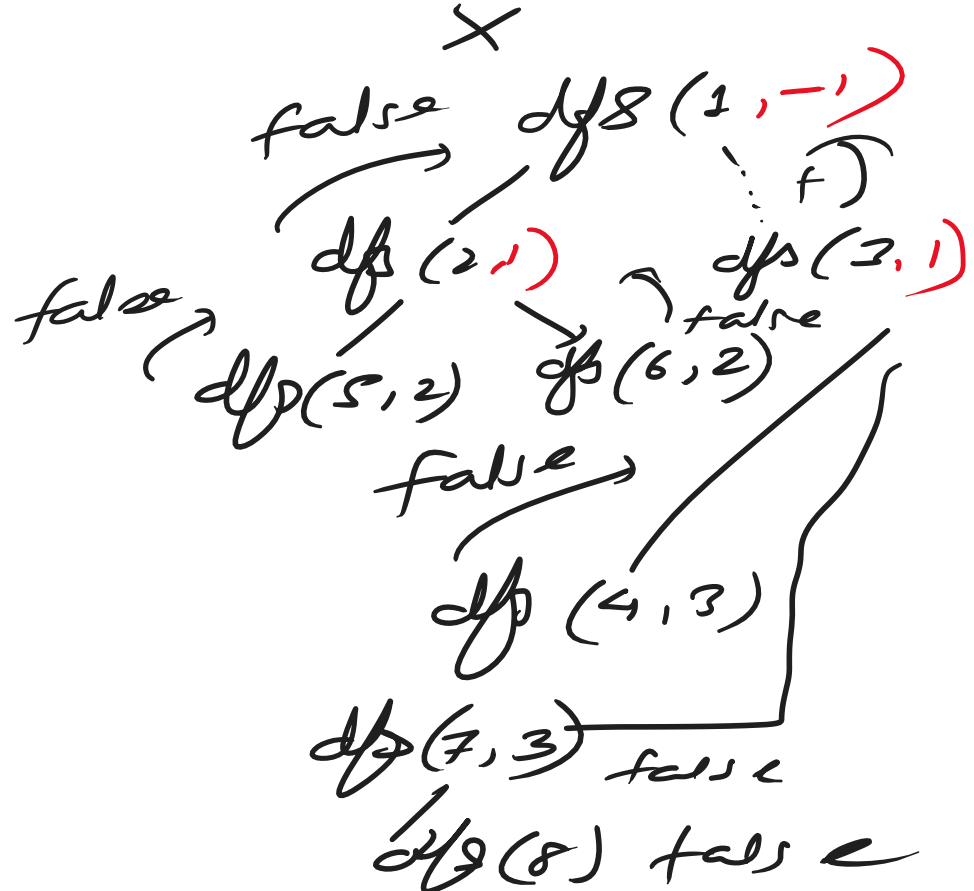 X
false dfs (1, -1)
f
dfs (2,1) dfs (3,1)
false false
dfs (5,2) dfs (6,2)
false
dfs (4,3)
dfs (7,3) false
dfs (8) false